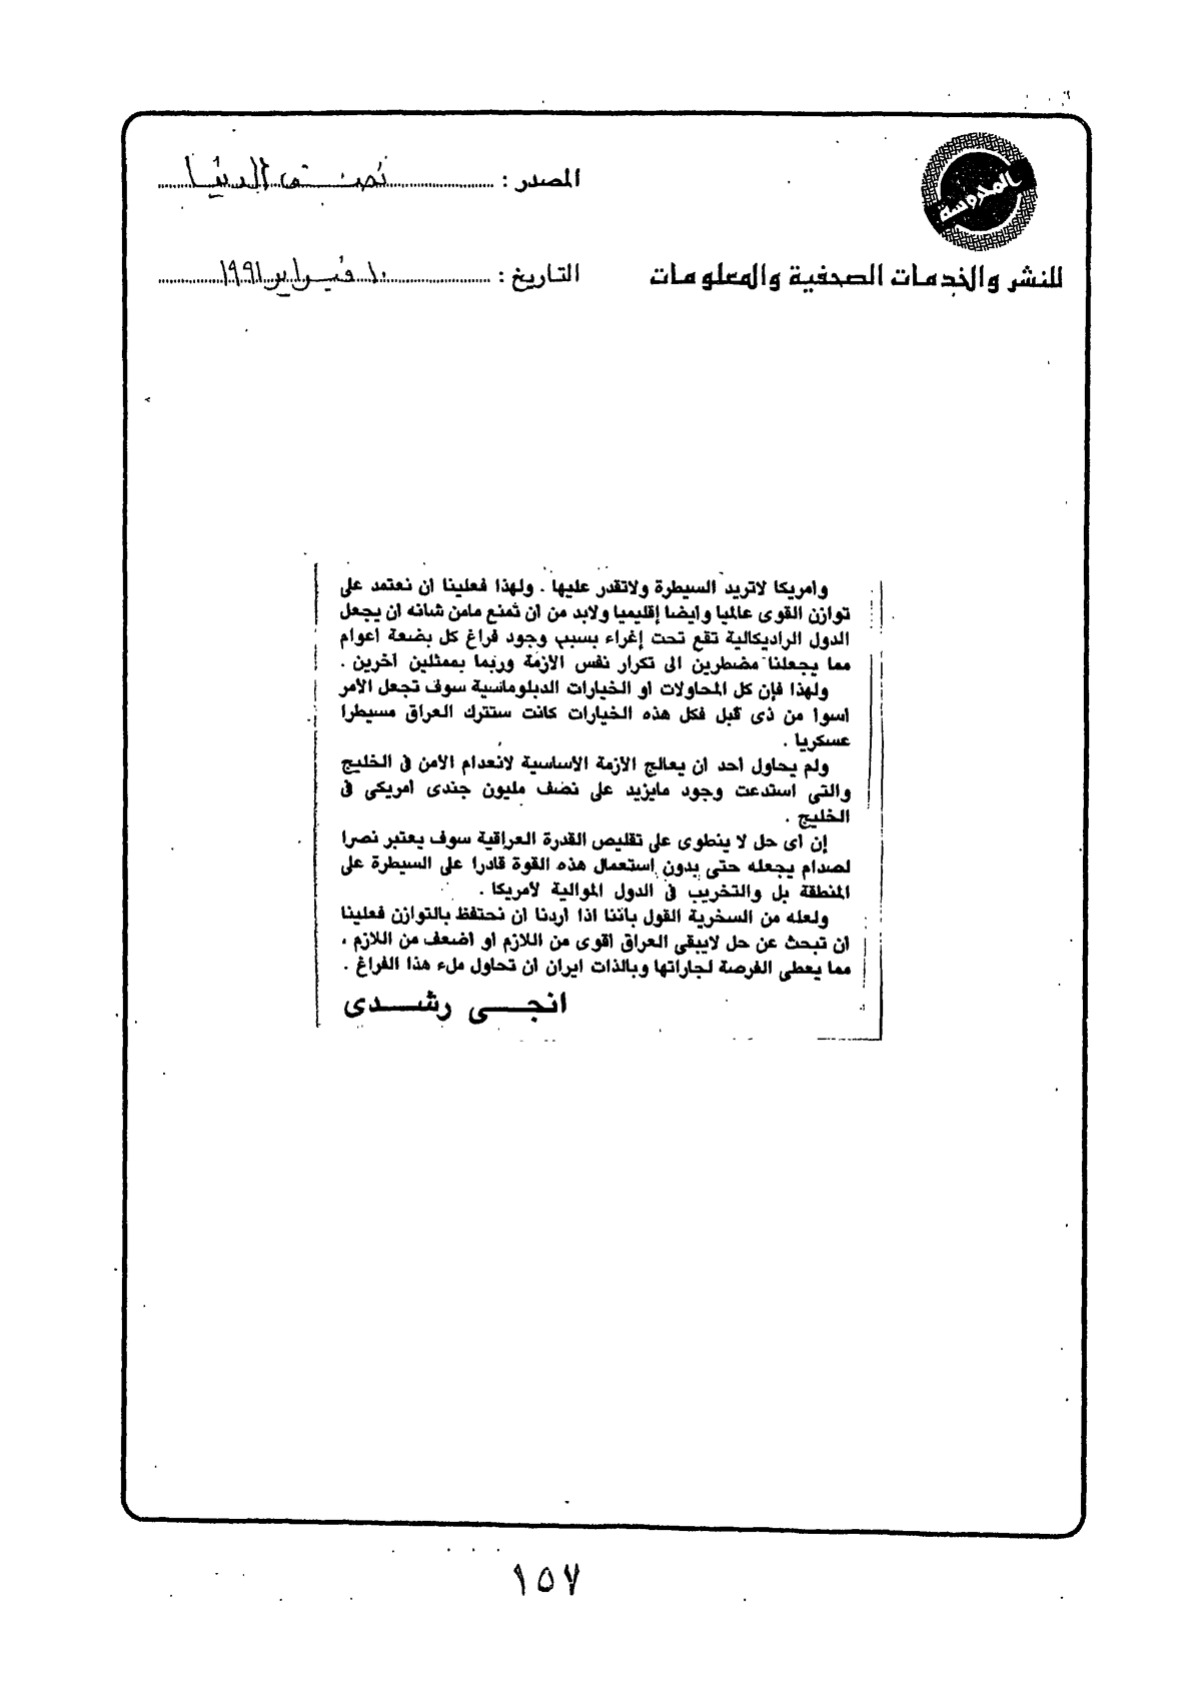 المحروسة
للنشر والخدمات الصحفية والمعلومات
المصدر : نصف الدنيا
التاريخ : ١٠ فبراير ١٩٩١
وامريكا لاتريد السيطرة ولاتقدر عليها . ولهذا فعلينا ان نعتمد على
توازن القوى عالميا وايضا إقليميا ولابد من ان نمنع مامن شانه ان يجعل
الدول الراديكالية تقع تحت إغراء بسبب وجود فراغ كل بضعة اعوام
مما يجعلنا مضطرين الى تكرار نفس الازمة وربما بممثلين آخرين .
ولهذا فإن كل المحاولات او الخيارات الدبلوماسية سوف تجعل الامر
اسوا من ذى قبل فكل هذه الخيارات كانت ستترك العراق مسيطرا
عسكريا .
ولم يحاول احد ان يعالج الازمة الاساسية لانعدام الامن فى الخليج
والتى استدعت وجود مايزيد على نصف مليون جندى امريكى فى
الخليج .
إن اى حل لا ينطوى على تقليص القدرة العراقية سوف يعتبر نصرا
لصدام يجعله حتى بدون إستعمال هذه القوة قادرا على السيطرة على
المنطقة بل والتخريب فى الدول الموالية لامريكا .
ولعله من السخرية القول باننا اذا اردنا ان نحتفظ بالتوازن فعلينا
ان نبحث عن حل لايبقى العراق اقوى من اللازم او اضعف من اللازم ،
مما يعطى الفرصة لجاراتها وبالذات ايران ان تحاول ملء هذا الفراغ .
انجى رشدى
١٥٧